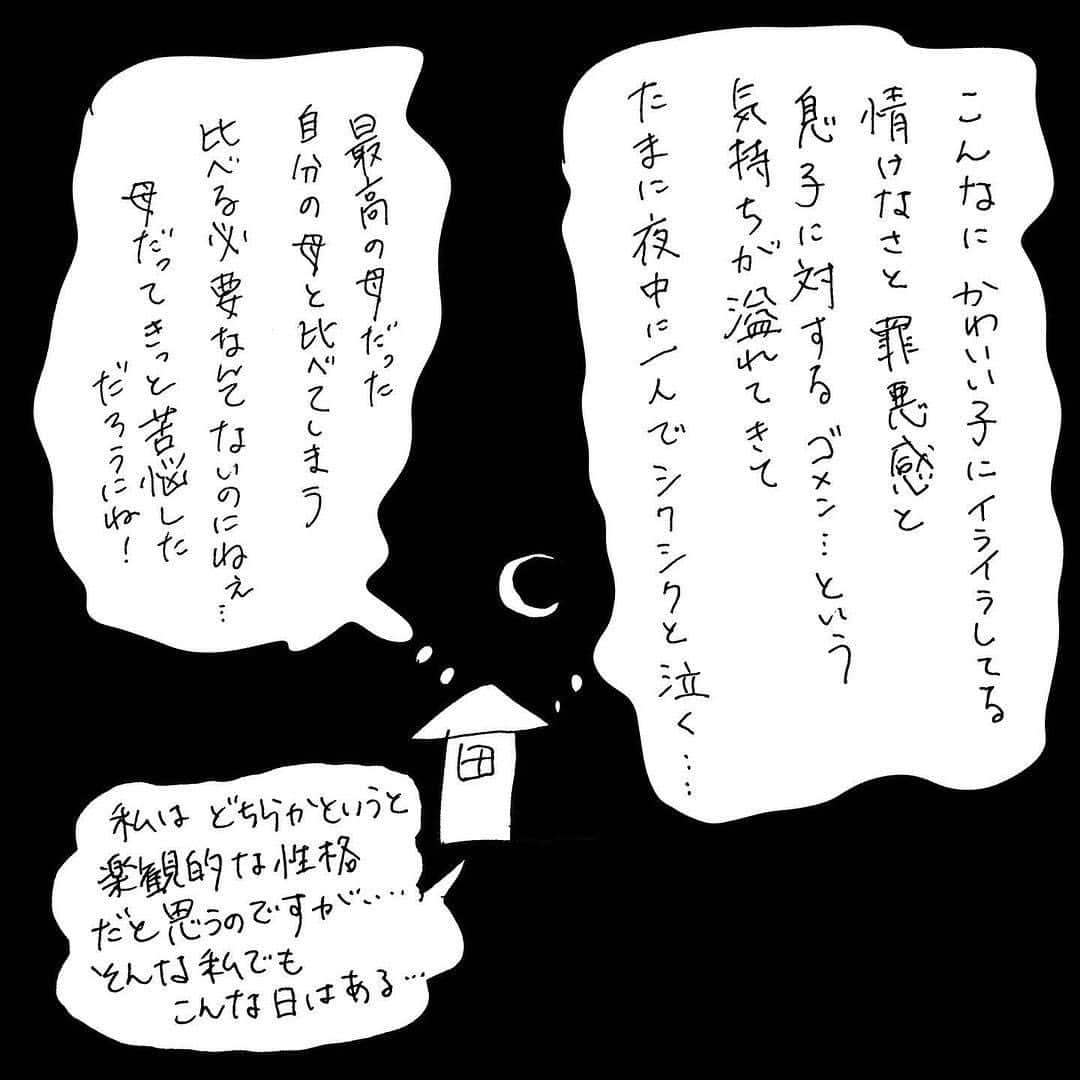 こんなに かわいい子にイライラしてる
情けなさと 罪悪感と
息子に対する ゴメン…という
気持ちが溢れてきて
たまに夜中に一人でシクシクと泣く……
最高の母だった
自分の母と比べてしまう
比べる必要なんてないのにねぇ…
母だってきっと苦悩した
だろうにね！
私は どちらかというと
楽観的な性格
だと思うのですが……
そんな私でも
こんな日はある…